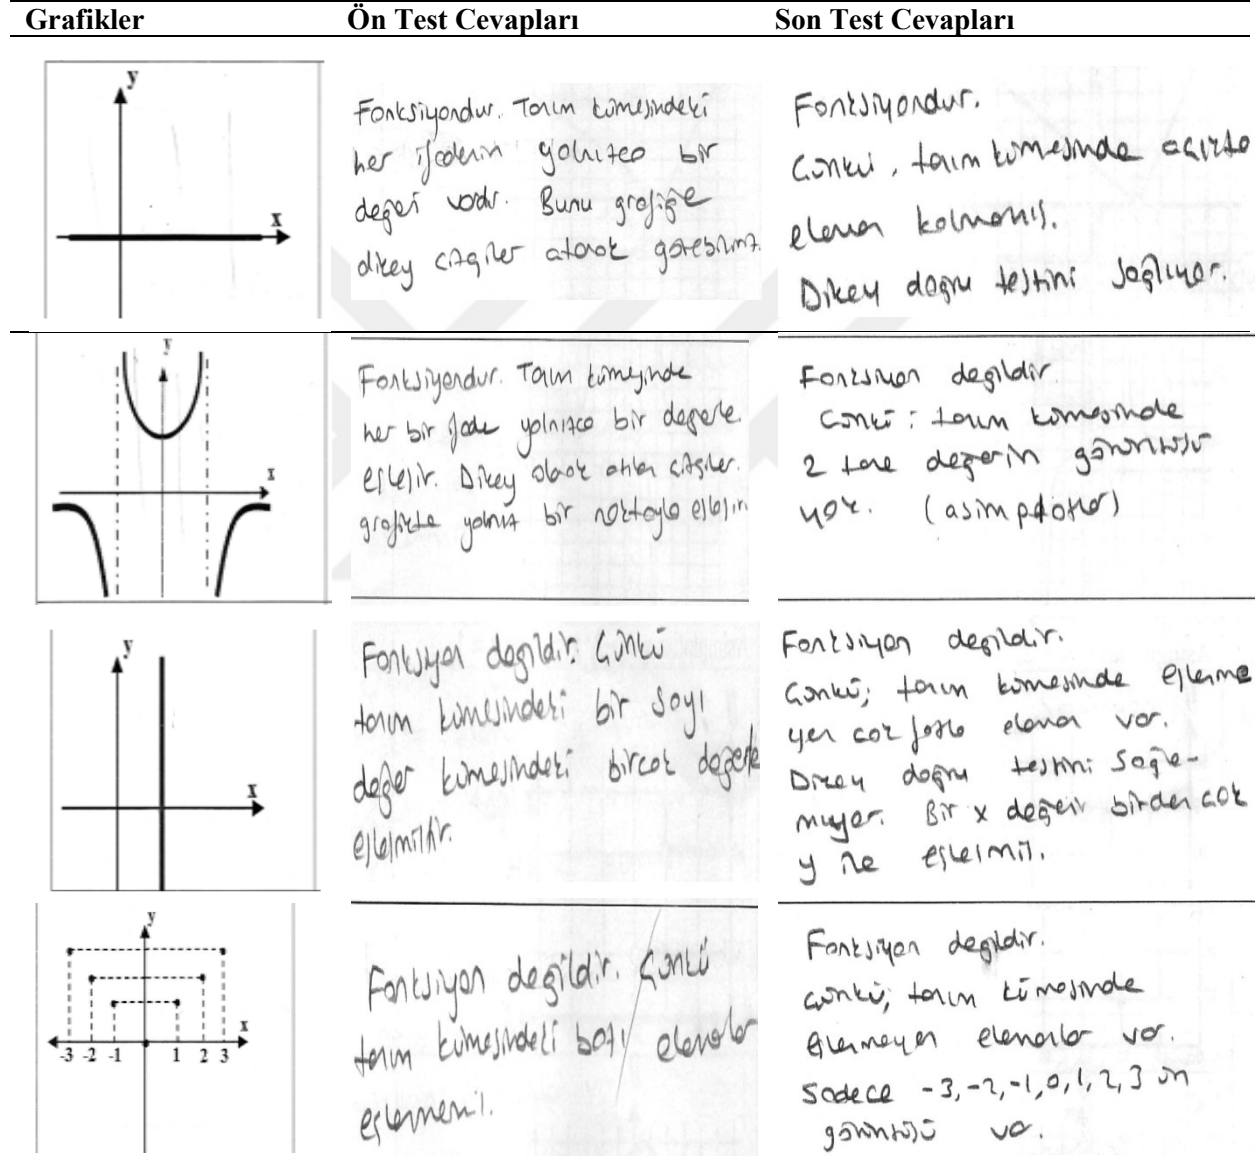 Grafikler Ön Test Cevapları Son Test Cevapları
y
x
Fonksiyondur. Tanım kümesindeki
her ifadenin yalnızca bir
değeri vardır. Bunu grafiğe
dikey çizgiler atarak görebiliriz.
Fonksiyondur.
Çünkü, tanım kümesinde açıkta
eleman kalmamış.
Dikey doğru testini sağlıyor.
y
x
Fonksiyondur. Tanım kümesinde
her bir ifade yalnızca bir değerle
eşleşir. Dikey olarak atılan çizgiler
grafikte yalnız bir noktayla eşleşir
Fonksiyon değildir
Çünkü: tanım kümesinde
2 tane değerin görüntüsü
yok. (asimptotlar)
y
x
Fonksiyon değildir. Çünkü
tanım kümesindeki bir sayı
değer kümesindeki birçok değerle
eşleşmiştir.
Fonksiyon değildir.
Çünkü; tanım kümesinde eşlenme
yen çok fazla eleman var.
Dikey doğru testini sağla-
mıyor. Bir x değeri birden çok
y ile eşleşmiş.
y
x
-3 -2 -1 1 2 3
Fonksiyon değildir. Çünkü
tanım kümesindeki bazı elemanlar
eşlenmemiş.
Fonksiyon değildir.
Çünkü; tanım kümesinde
eşlenmeyen elemanlar var.
Sadece -3, -2, -1, 0, 1, 2, 3 ün
görüntüsü var.